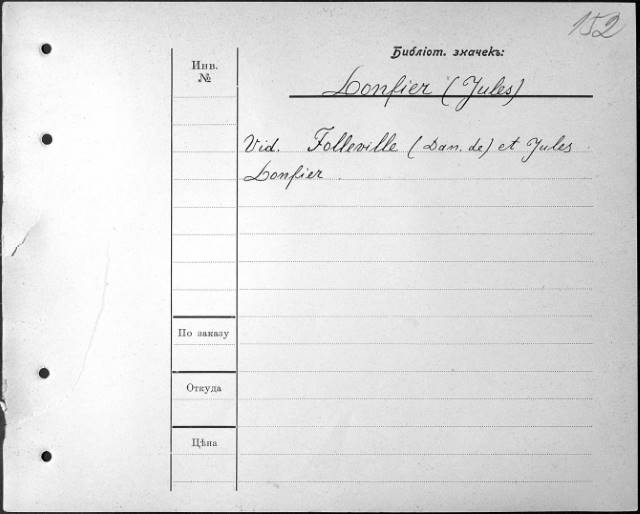 152
Библіот. значекъ:
Инв.
№
Lonfier (Jules)
Vid. Folleville (Dan. de) et Jules
Lonfier.
По заказу
Откуда
Цѣна